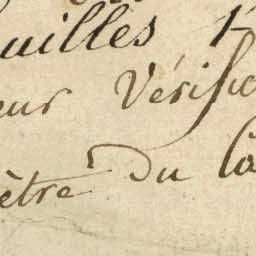 uilles
eur Vérific
être Du Ca